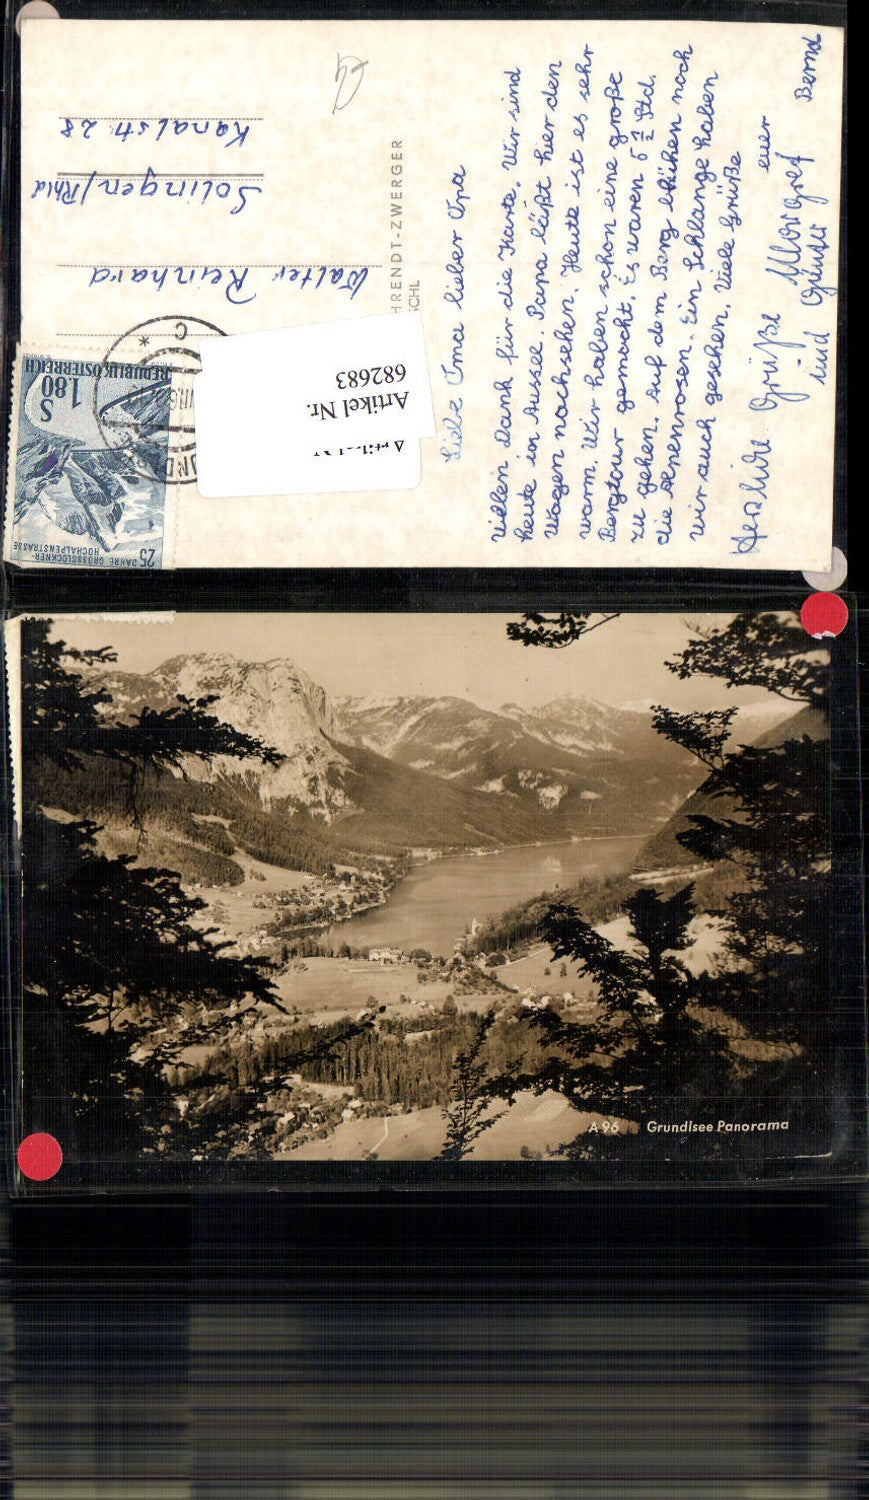 Liebe Oma lieber Opa
Vielen Dank für die Karte. Wir sind
heute in Aussee. Papa läßt hier den
Wagen nachsehen. Heute ist es sehr
warm. Wir haben schon eine große
Bergtour gemacht. Es waren 5 ½ Std.
zu gehen. Auf dem Berg blühen noch
die Alpenrosen. Ein Schlange haben
wir auch gesehen. Viele Grüße
euer
Herzliche Grüße Margret Bernd
und Günter
HRENDT-ZWERGER
SCHL
Walter Reinhard
Solingen/Rhld
Kanalstr. 28
REPUBLIK ÖSTERREICH
S 1.80
25 JAHRE GROSSGLOCKNER-
HOCHALPENSTRASSE
UNDL
Artikel Nr.
Artikel Nr.
682683
A 96 Grundlsee Panorama